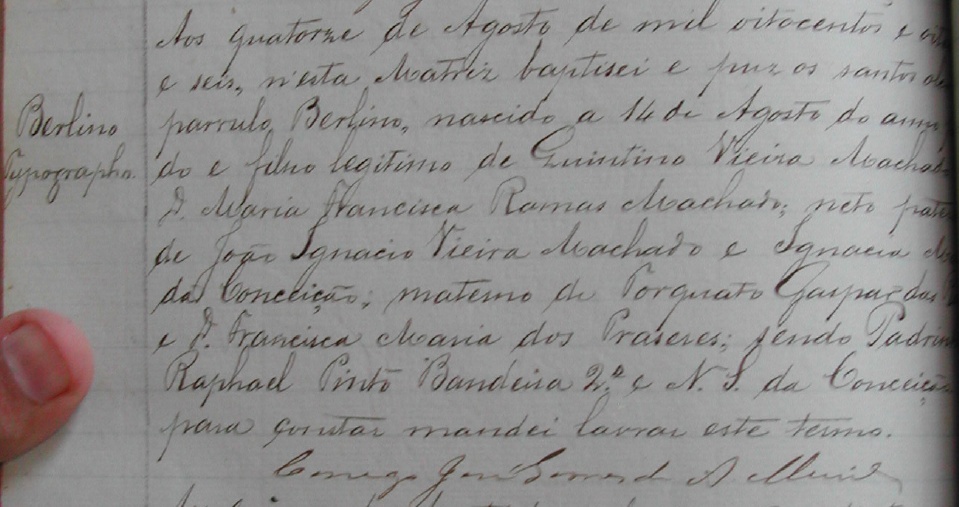 Berlino
Typographo.
Aos quatorze de Agosto de mil oitocentos e oite
e seis, n'esta Matriz baptisei e puz os santos ole
parvulo Berlino, nascido a 14 de Agosto do anno
do e filho legitimo de Quintino Vieira Machado
D. Maria Francisca Ramas Machado; neto pater
de João Ignacio Vieira Machado e Ignacia
da Conceição; materno de Torquato Gaspar das
e D. Francisca Maria dos Praseres; sendo Padrin
Raphael Pinto Bandeira 2.º e N. S. da Conceição
para constar mandei lavrar este termo.
Conego José